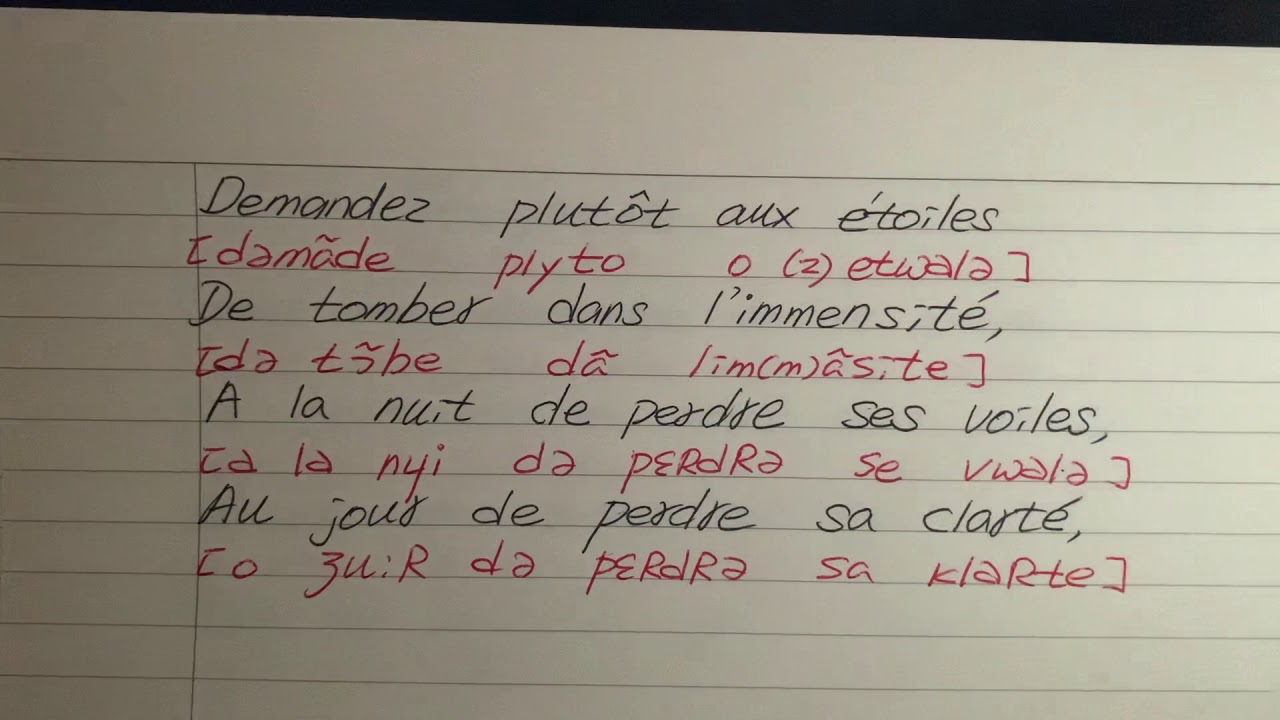 Demandez plutôt aux étoiles
[dəmãde plyto o (z) etwalə]
De tomber dans l'immensité,
[də tɔ̃be dã lim(m)ãsite]
A la nuit de perdre ses voiles,
[a la nyi də pɛRdRə se vwalə]
Au jour de perdre sa clarté,
[o ʒu:R də pɛRdRə sa klaRte]